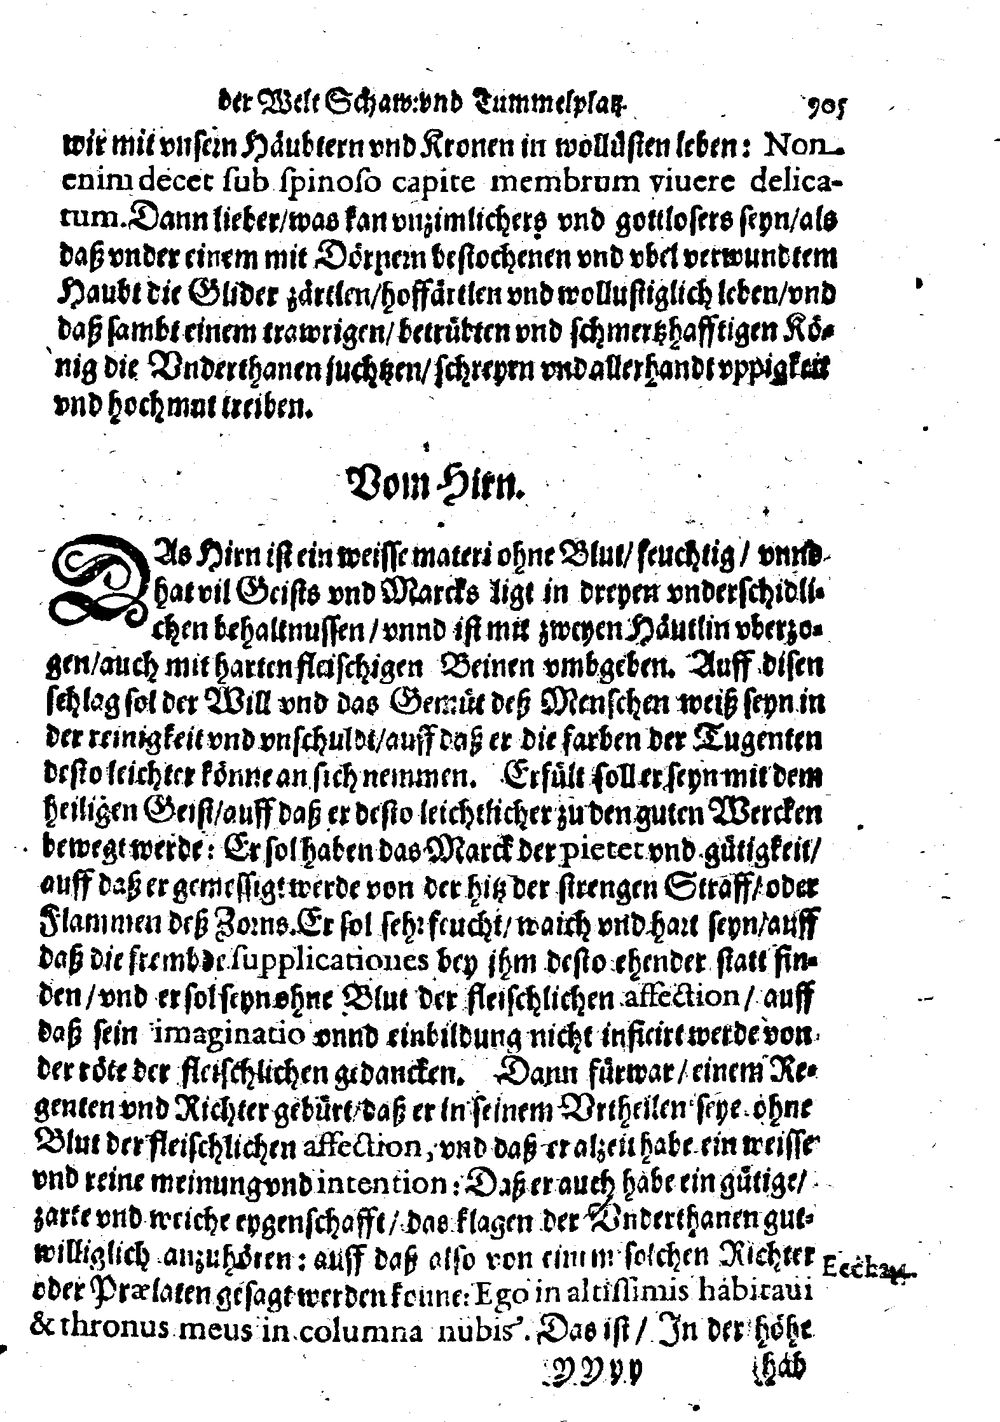 der Welt Schaw: vnd Tummelplatz. 905
wir mit vnsern Häubtern vnd Kronen in wollüsten leben: Non
enim decet sub spinoso capite membrum viuere delica-
tum. Dann lieber/was kan vnzimlichers vnd gottlosers seyn/als
daß vnder einem mit Dörnern bestochenen vnd vbel verwundtem
Haubt die Glider zärtlen/hoffärtlen vnd wollustiglich leben/vnd
daß sambt einem trawrigen/betrübten vnd schmertzhafftigen Kö-
nig die Vnderthanen juchtzen/schreyen vnd allerhandt vppigkeit
vnd hochmut treiben.
Vom Hirn.
DAs Hirn ist ein weisse materi ohne Blut/feuchtig/ vnnd
hat vil Geists vnd Marcks ligt in dreyen vnderschidli-
chen behaltnussen/vnnd ist mit zweyen Häutlin vberzo-
gen/auch mit harten fleischigen Beinen vmbgeben. Auff disen
schlag sol der Will vnd das Gemüt deß Menschen weiß seyn in
der reinigkeit vnd vnschuldt/auff daß er die farben der Tugenten
desto leichter könne an sich nemmen. Erfült soll er seyn mit dem
heiligen Geist/auff daß er desto leichtlicher zu den guten Wercken
bewegt werde: Er sol haben das Marck der pietet vnd gütigkeit/
auff daß er gemessigt werde von der hitz der strengen Straff/oder
Flammen deß Zorns. Er sol sehr feucht/waich vnd hart seyn/auff
daß die frembde supplicationes bey jhm desto ehender statt fin-
den/vnd er sol seyn ohne Blut der fleischlichen affection/ auff
daß sein imaginatio vnnd einbildung nicht inficirt werde von
der röte der fleischlichen gedancken. Dann fürwar/einem Re-
genten vnd Richter gebürt/daß er in seinem Vrtheilen seye ohne
Blut der fleischlichen affection, vnd daß er alzeit habe ein weisse
vnd reine meinung vnd intention: Daß er auch habe ein gütige/
zarte vnd weiche eygenschafft/das klagen der Vnderthanen gut-
williglich anzuhören: auff daß also von einem solchen Richter
oder Prælaten gesagt werden konne: Ego in altissimis habitaui
& thronus meus in columna nubis. Das ist/ In der höhe
YYyy hab